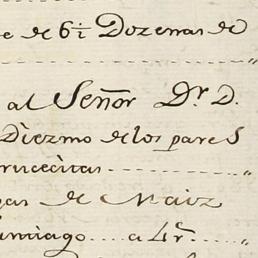 e de 6½ Dozenas de
al Señor Dr. D.
Diezmo de los pares
rucecitas
gas de Maiz
antiago.... a 4 r.